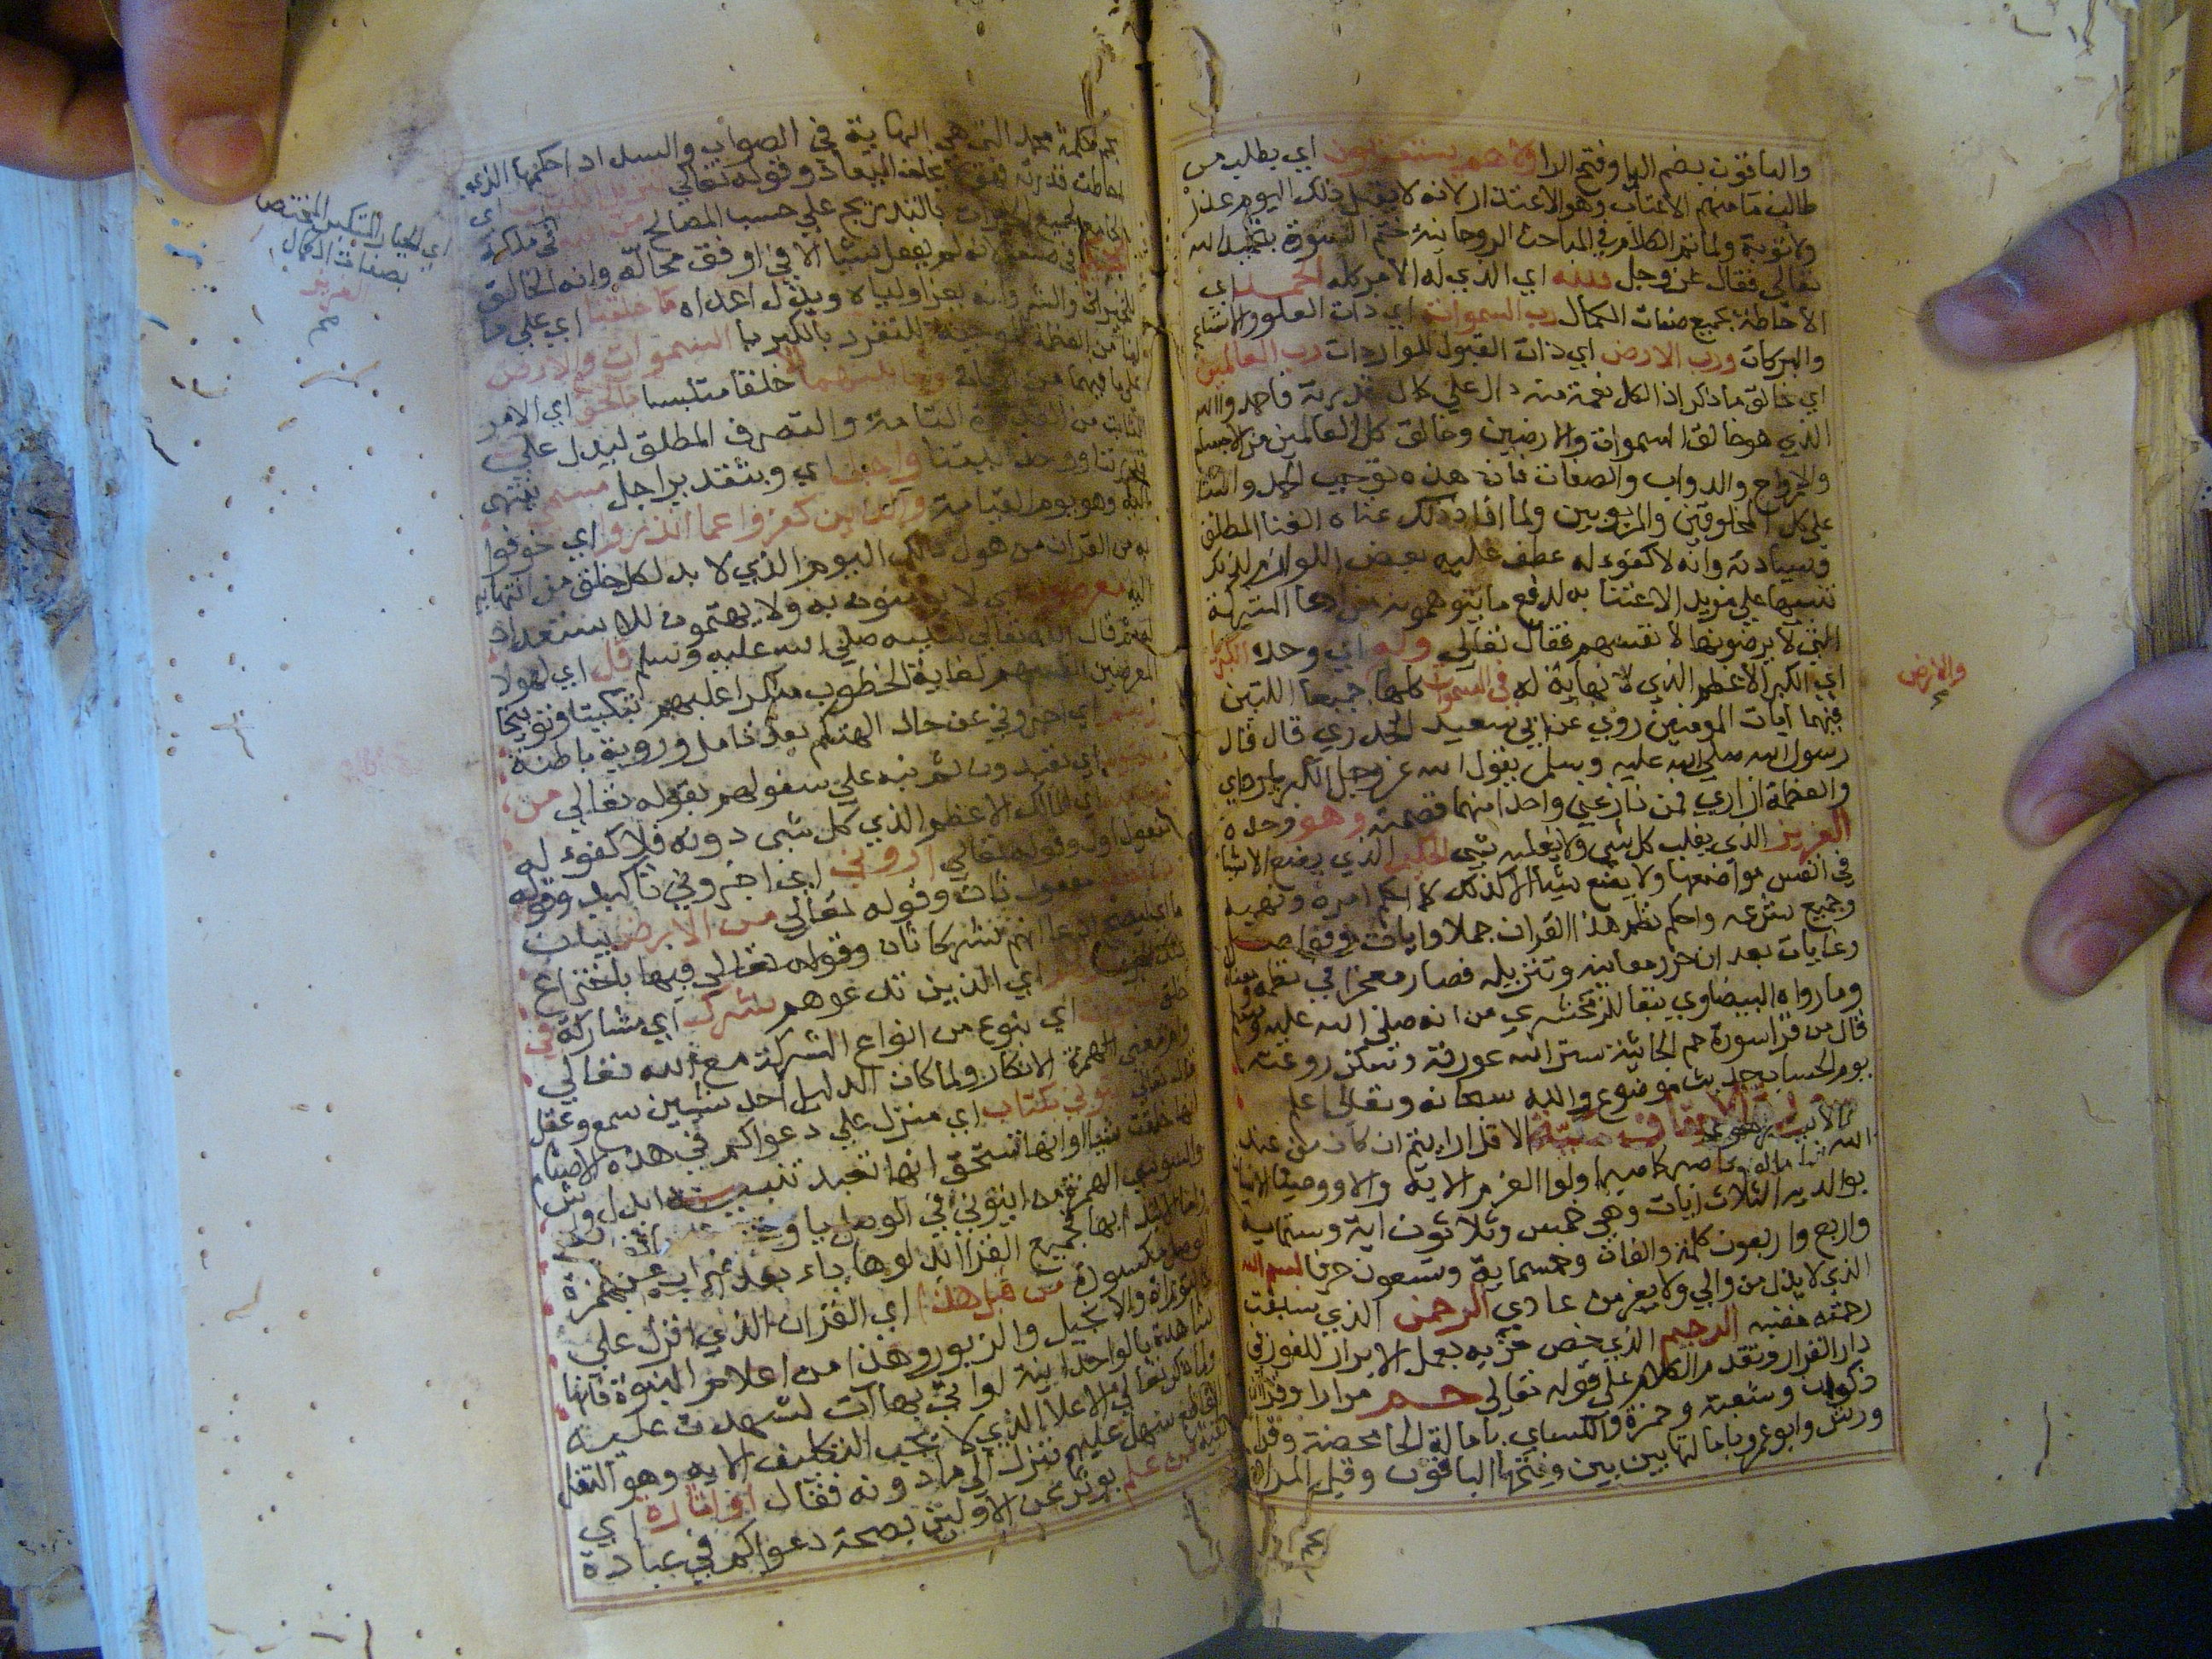 والباقون بضم اليا وفتح الرا ولا هم يستعتبون اي يطلب من
طالب ما منهم الاعتاب وهو الاعتذار لانه لا يقبل ذلك اليوم عذر
ولا توبة ولما تم الكلام في المباحث الروحانية ختم السورة بتحميد الله
تعالى فقال عز وجل فلله اي الذي له الامر كله الحمد اي
الاحاطة بجميع صفات الكمال رب السموات اي ذات العلو والاتساع
والبركات ورب الارض اي ذات القبول للواردات رب العالمين
اي خالق ما ذكر اذ الكل نعمة منه دال على كمال قدرته فاحمدوا الله
الذي هو خالق السموات والارضين وخالق كل العالمين من الاجسام
والارواح والدواب والصفات فان هذه توجب الحمد والثنا
على كل المخلوقين والمربوبين ولما افاد ذلك غناه الغنا المطلق
وسيادته وانه لا كفوء له عطف عليه بعض اللوازم لذلك
تنبيها على مزيد الاعتنا به لدفع ما يتوهمونه من ادعا الشركة
التي لا يرضونها لانفسهم فقال تعالى وله اي وحده الكبريا
اي الكبر الاعظم الذي لا نهاية له في السموات كلها جميعا اللتين
والارض
فيهما ايات المومنين روي عن ابي سعيد الخدري قال قال
رسول الله صلى الله عليه وسلم يقول الله عز وجل الكبريا رداي
والعظمة ازاري فمن نازعني واحدا منهما قصمته وهو وحده
العزيز الذي يغلب كل شي ولا يغلبه شي الحكيم الذي يضع الاشيا
في اتقن مواضعها ولا يضع شيئا الا كذلك كما احكم امره ونهيه
وجميع شرعه واحكم نظم هذا القران جملا وايات وفواصل
وغايات بعد ان حرر معانيه وتنزيله فصار معجزا في نظمه ومعناه
وما رواه البيضاوي تبعا للزمخشري من انه صلى الله عليه وسلم
قال من قرا سورة حم الجاثية ستر الله عورته وسكن روعته
يوم الحساب حديث موضوع والله سبحانه وتعالى اعلم
سورة الاحقاف مكية الا قل ارايتم ان كان من عند
الله الاية والا فاصبر كما صبر اولوا العزم الاية والا ووصينا الانسان
بوالديه الثلاث ايات وهي خمس وثلاثون اية وستماية
واربع واربعون كلمة والفان وخمسماية وتسعون حرفا بسم الله
الذي لا يذل من والى ولا يعز من عادى الرحمن الذي سبقت
رحمته غضبه الرحيم الذي خص حزبه بعمل الابرار للفوز في
دار القرار وتقدم الكلام على قوله تعالى حم مرارا وقرا
ذكوان وشعبة وحمزة والكسائي بامالة الحا محضة وقرا
ورش وابو عمرو بامالتها بين بين وفتحها الباقون وقيل المراد
بحم حكمة محمد التي هي النهاية في الصواب والسداد احكمها الذي
احاطت قدرته فهو لا يخلف الميعاد وقوله تعالى تنزيل الكتاب اي
الجامع لجميع الخيرات بالتدريج على حسب المصالح من الله
اي الكبير المتكبر المختص
بصفات الكمال
العزيز
في ملكه
الحكيم في صنعه لانه لم يفعل شيئا الا في اوفق محاله وانه الخالق
للخير والشر وانه يعز اولياه ويذل اعداه ما خلقنا اي على ما
لنا من العظمة الموجبة للتفرد بالكبريا السموات والارض
على ما فيهما من الايات وما بينهما الا خلقا متلبسا بالحق اي الامر
الثابت من القدرة التامة والتصرف المطلق ليدل على
قدرتنا ووحدانيتنا واجل اي وبتقدير اجل مسمى ينتهى
اليه وهو يوم القيامة والذين كفروا عما انذروا اي خوفوا
به من القران من هول ذلك اليوم الذي لا بد لكل خلق من انتهايه
اليه معرضون اي لا يومنون به ولا يهتمون للاستعداد
له ثم قال الله تعالى لنبيه صلى الله عليه وسلم قل اي لهولا
المعرضين انفسهم لغاية الخطوب منكرا عليهم تبكيتا وتوبيخا
ارايتم اي اخبروني عن حال الهتكم بعد تامل وروية باطنة
ما تدعون اي تعبدون ثم نبه على سفولهم بقوله تعالى من
دون الله اي الملك الاعظم الذي كل شي دونه فلا كفوء له
مفعول اول وقوله تعالى اروني اي اخبروني تاكيد وقوله
ماذا خلقوا مفعول ثان وقوله تعالى من الارض بيان
ما اي ليصح ادعا انهم شركا ثان وقوله تعالى فيها باختراع
ام لهم اي الذين تدعوهم شرك اي مشاركة في
خلق السموات اي بنوع من انواع الشركة مع الله تعالى
وام بمعنى همزة الانكار ولما كان الدليل احد شيين سمع وعقل
قال تعالى ائتوني بكتاب اي منزل على دعواكم في هذه الاصنام
انها خلقت شيا او انها تستحق انها تعبد تنبيه ابدل ورش
والسوسي الهمزة من ايتوني في الوصل يا
واما الابتدا بها فجميع القرا ابدلوها ياء بعد همزة
الوصل مكسورة من قبل هذا اي القران الذي انزل علي
كالتوراة والانجيل والزبور وهذا من اعلام النبوة فانها
شاهدة بالوحدانية لو اتي بها ات لشهدت عليه
ولما ذكر تعالى الاعلا الذي لا يجب التكليف الا به وهو النقل
القاطع سهل عليهم فنزل الى ما دونه فقال او اثارة اي
بقية من علم يوثر عن الاولين بصحة دعواكم في عبادة